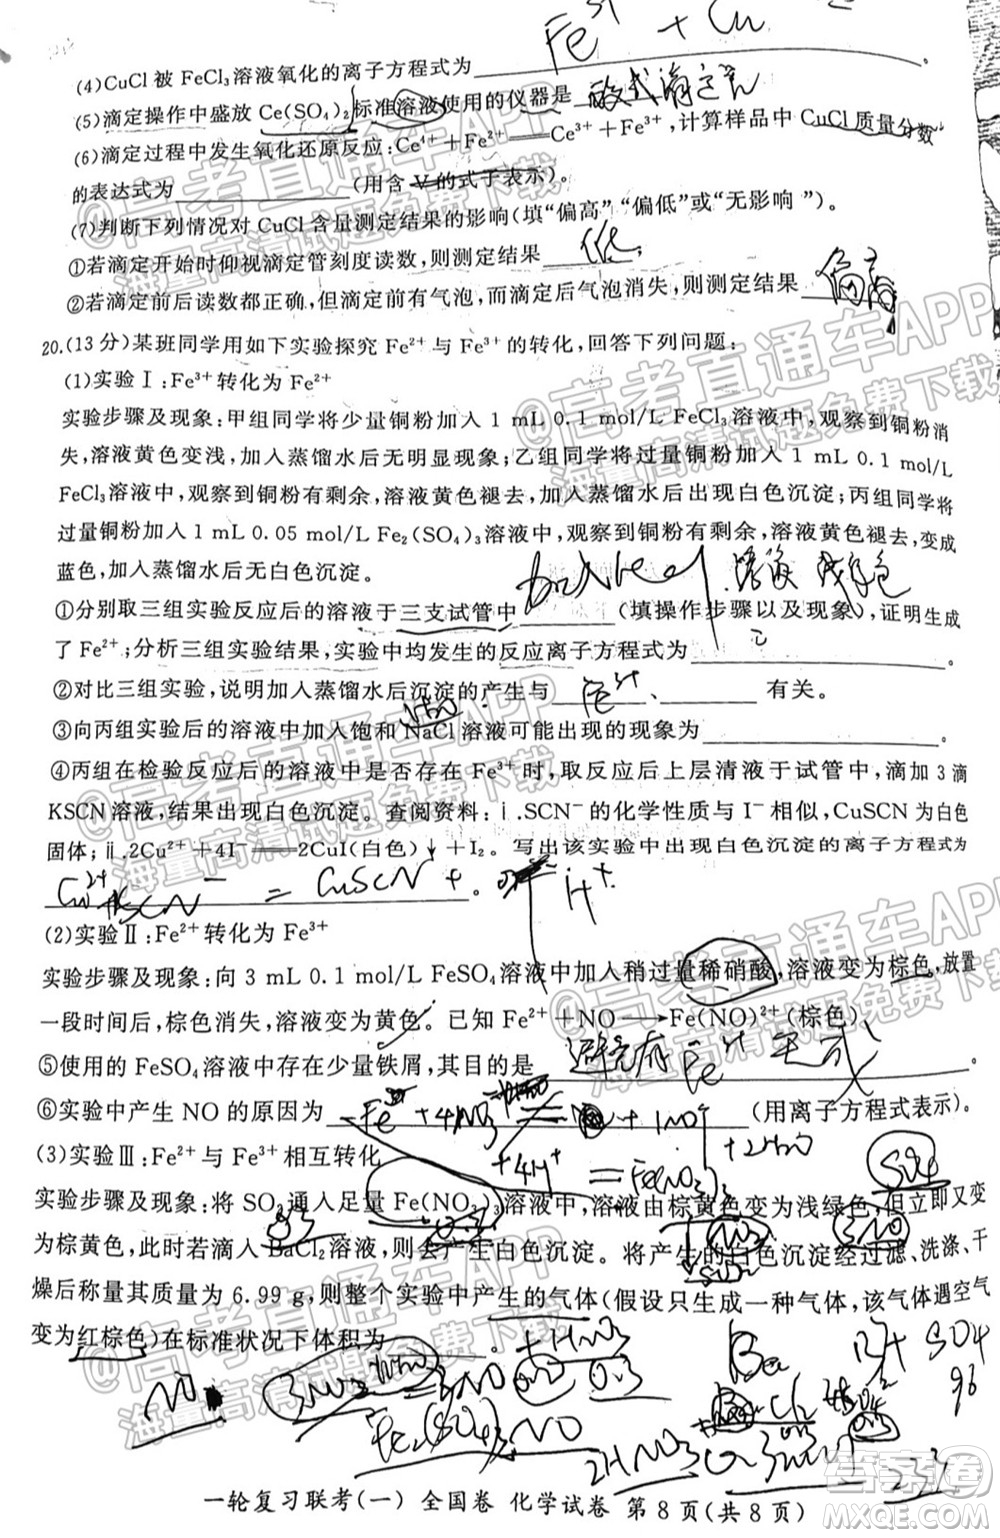 Fe³⁺ + Cu
(4)CuCl 被 FeCl₃ 溶液氧化的离子方程式为 。
(5)滴定操作中盛放 Ce(SO₄)₂标准溶液使用的仪器是 酸式滴定管
(6)滴定过程中发生氧化还原反应:Ce⁴⁺＋Fe²⁺══Ce³⁺＋Fe³⁺,计算样品中 CuCl 质量分数
的表达式为 (用含 V 的式子表示)。
(7)判断下列情况对 CuCl 含量测定结果的影响(填“偏高”“偏低”或“无影响 ”)。
①若滴定开始时仰视滴定管刻度读数,则测定结果 低 。
②若滴定前后读数都正确,但滴定前有气泡,而滴定后气泡消失,则测定结果 偏高
20.(13 分)某班同学用如下实验探究 Fe²⁺ 与 Fe³⁺ 的转化,回答下列问题:
(1)实验Ⅰ:Fe³⁺转化为 Fe²⁺
实验步骤及现象:甲组同学将少量铜粉加入 1 mL 0.1 mol/L FeCl₃溶液中,观察到铜粉消
失,溶液黄色变浅,加入蒸馏水后无明显现象;乙组同学将过量铜粉加入 1 mL 0.1 mol/L
FeCl₃溶液中,观察到铜粉有剩余,溶液黄色褪去,加入蒸馏水后出现白色沉淀;丙组同学将
过量铜粉加入 1 mL 0.05 mol/L Fe₂(SO₄)₃溶液中,观察到铜粉有剩余,溶液黄色褪去,变成
蓝色,加入蒸馏水后无白色沉淀。
①分别取三组实验反应后的溶液于三支试管中 (填操作步骤以及现象),证明生成
了 Fe²⁺;分析三组实验结果,实验中均发生的反应离子方程式为 。
②对比三组实验,说明加入蒸馏水后沉淀的产生与 Fe³⁺ 有关。
③向丙组实验后的溶液中加入饱和 NaCl 溶液可能出现的现象为 。
④丙组在检验反应后的溶液中是否存在 Fe³⁺时,取反应后上层清液于试管中,滴加 3 滴
KSCN 溶液,结果出现白色沉淀。查阅资料:ⅰ.SCN⁻的化学性质与 I⁻相似,CuSCN 为白色
固体;ⅱ.2Cu²⁺＋4I⁻══2CuI(白色)↓＋I₂。写出该实验中出现白色沉淀的离子方程式为
Cu²⁺ + SCN⁻ = CuSCN + 。
(2)实验Ⅱ:Fe²⁺转化为 Fe³⁺
实验步骤及现象:向 3 mL 0.1 mol/L FeSO₄溶液中加入稍过量稀硝酸,溶液变为棕色,放置
一段时间后,棕色消失,溶液变为黄色。已知 Fe²⁺＋NO⟶Fe(NO)²⁺(棕色)。
⑤使用的 FeSO₄溶液中存在少量铁屑,其目的是 避免有Fe³⁺生成 。
⑥实验中产生 NO 的原因为 (用离子方程式表示)。
(3)实验Ⅲ:Fe²⁺与 Fe³⁺相互转化
实验步骤及现象:将 SO₂通入足量 Fe(NO₃)₃溶液中,溶液由棕黄色变为浅绿色,但立即又变
为棕黄色,此时若滴入 BaCl₂溶液,则会产生白色沉淀。将产生的白色沉淀经过滤、洗涤、干
燥后称量其质量为 6.99 g,则整个实验中产生的气体(假设只生成一种气体,该气体遇空气
变为红棕色)在标准状况下体积为
NO
SO4
96
233
一轮复习联考(一) 全国卷 化学试卷 第 8 页(共 8 页)
@高考直通车APP
海量高清试题免费下载
@高考直通车APP
海量高清试题免费下载
@高考直通车APP
海量高清试题免费下载
@高考直通车APP
海量高清试题免费下载
@高考直通车APP
海量高清试题免费下载
答案圈
MXQE.COM